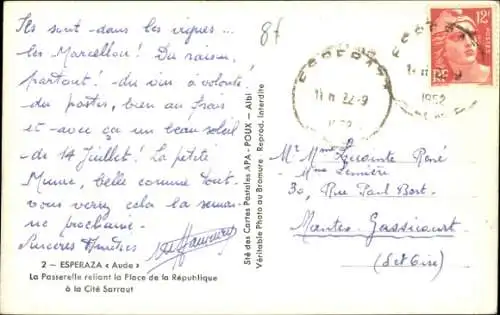 Ils sont dans les vignes...
les Marcellou! Du raisin,
partout! du vin à volonté!
du pastis, bien au frais
et avec ça un beau soleil
de 14 Juillet! La petite
Mimie, belle comme tout.
vous verrez cela la semai-
ne prochaine.
Sincères Amitiés
2 – ESPERAZA « Aude »
La Passerelle reliant la Place de la République
à la Cité Sarraut
Sté des Cartes Postales APA - POUX - Albi
Véritable Photo au Bromure Reprod. Interdite
8f
ESPERAZA
11 H 22-9
1952
12F
POSTES
RF
Mr Mme René
Mme Lumière
30, Rue Paul Bert.
Mantes-Gassicourt
(S et Oise)